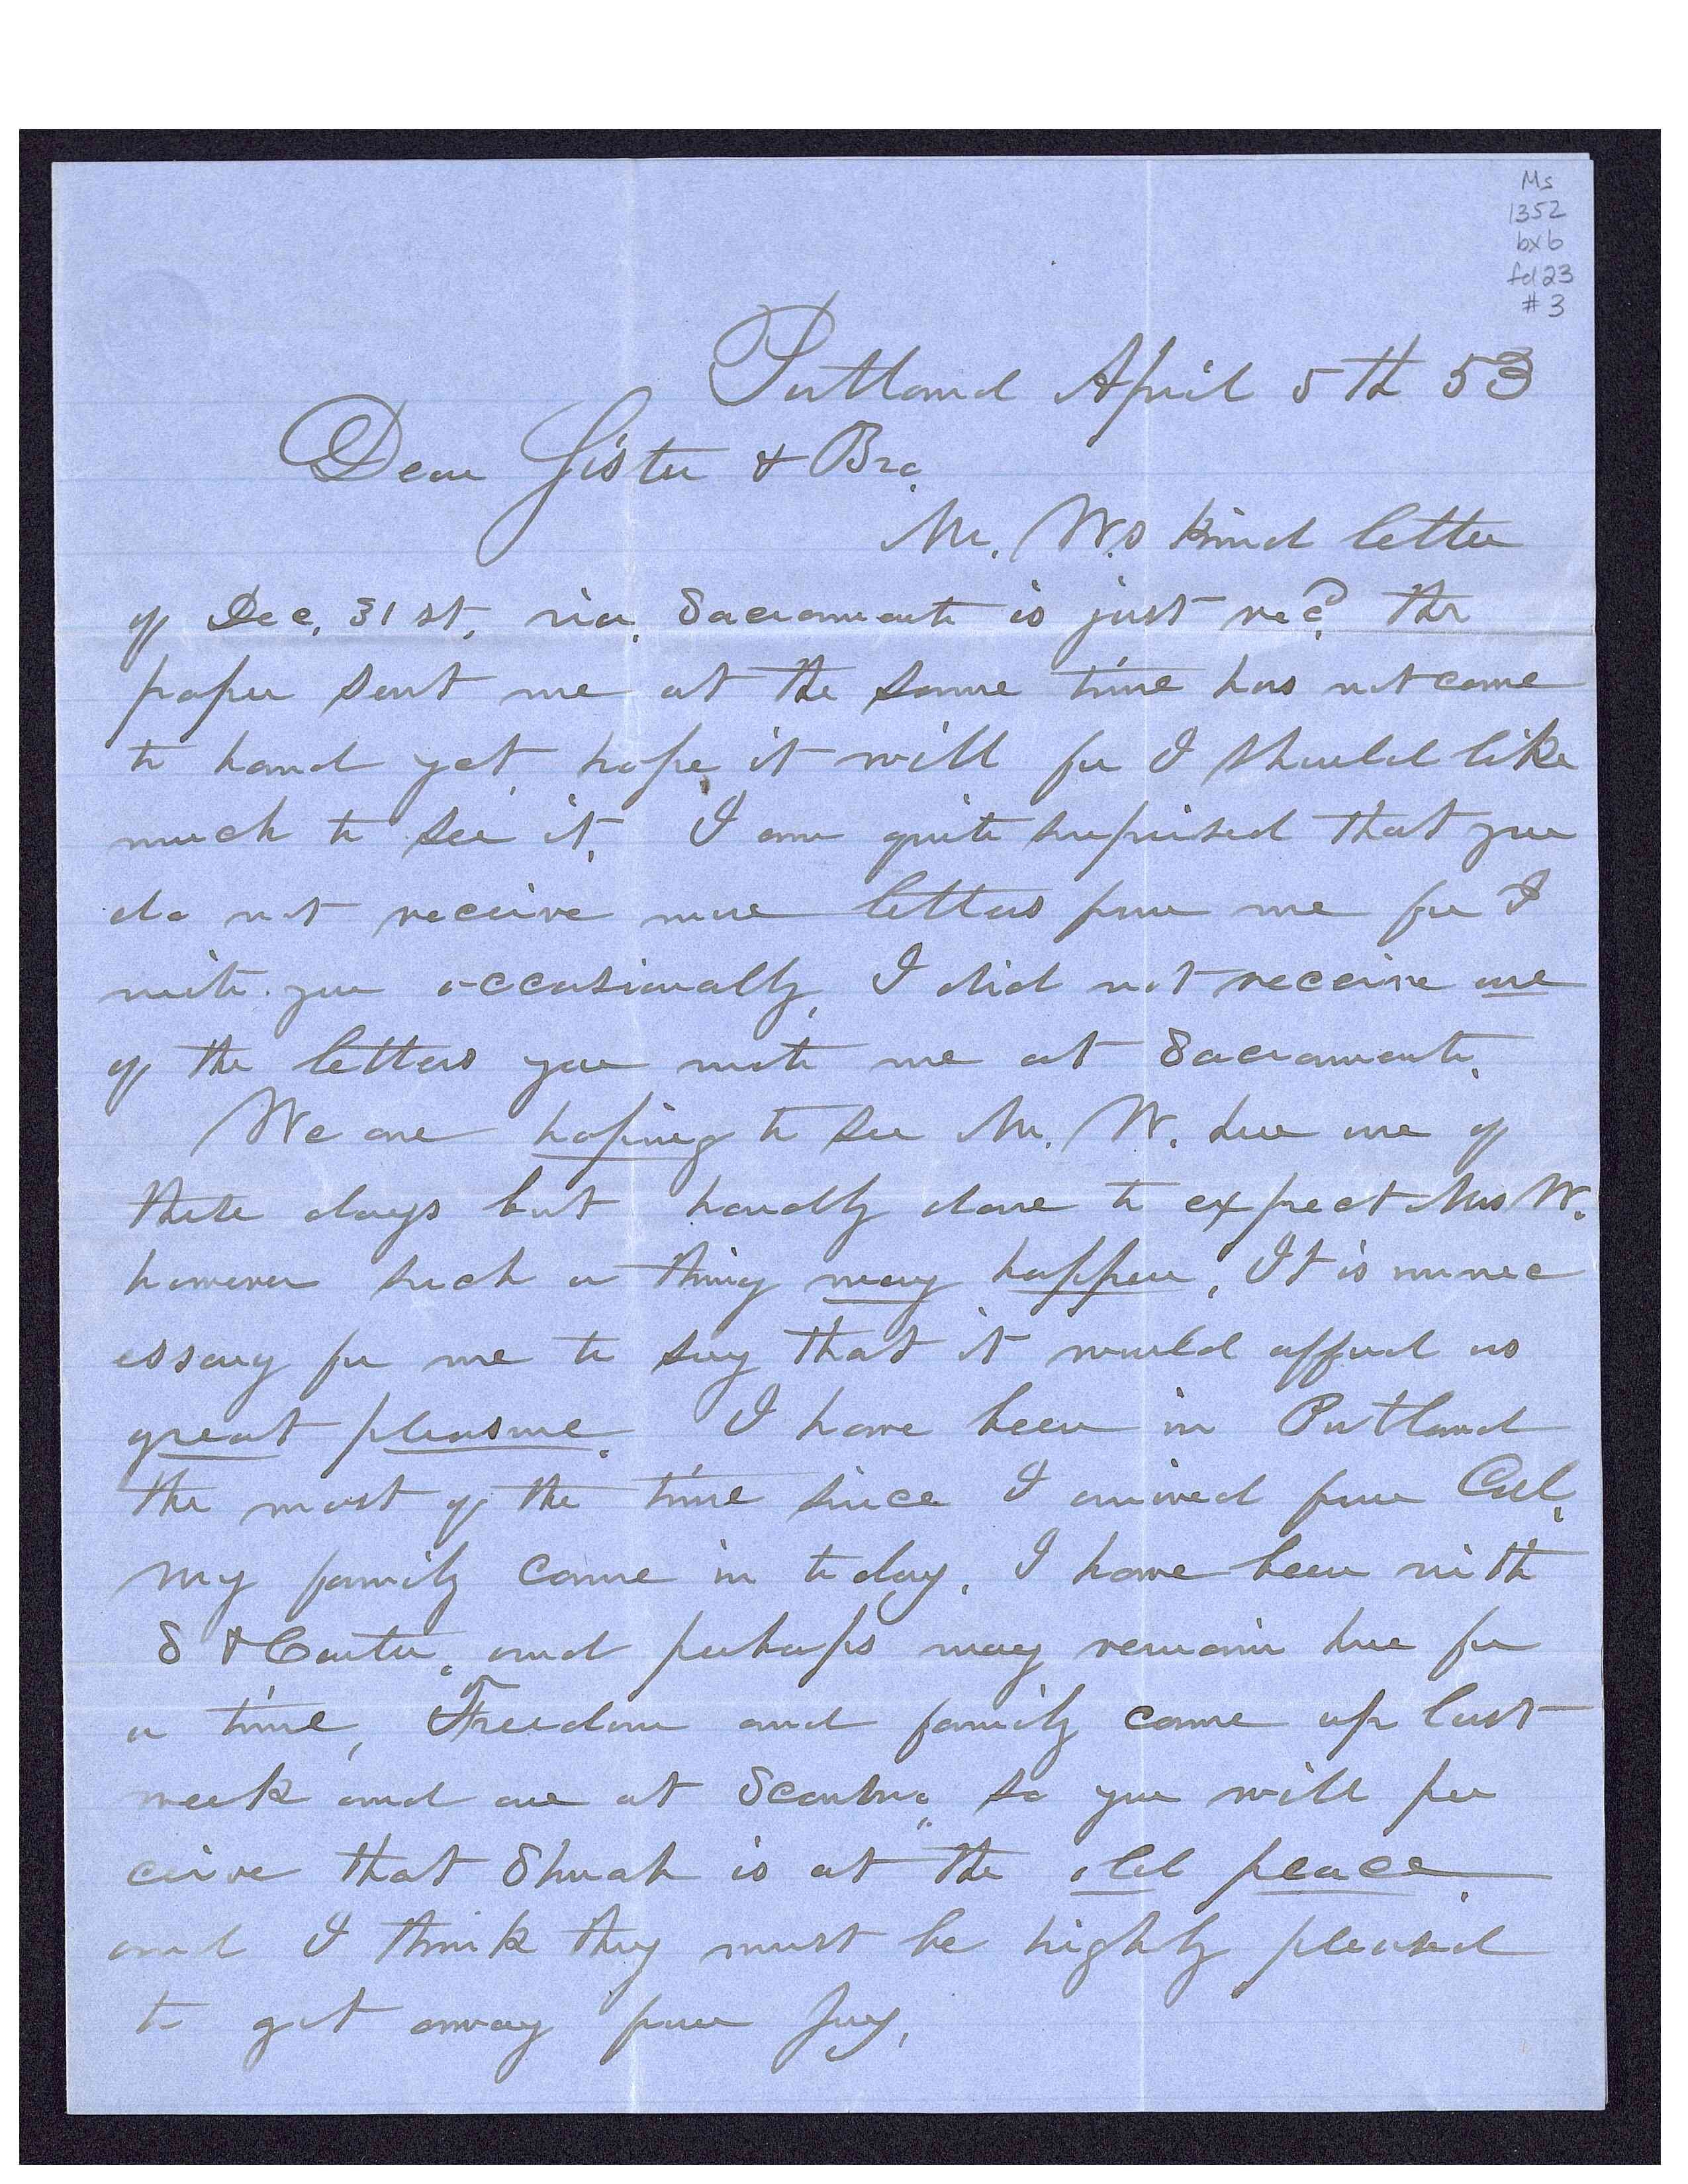 Ms
1352
bx6
fd23
#3
Portland April 5th 53
Dear Sister & Bro.
Mr. W.s kind letter
of Dec. 31st, via. Sacramento is just recd. The
paper sent me at the same time has not come
to hand yet, hope it will for I should like
much to see it. I am quite surprised that you
do not receive more letters from me for I
write you occasionally, I did not receive one
of the letters you wrote me at Sacramento.
We are hoping to see Mr. W. here one of
these days but hardly dare to expect Mrs W.
however such a thing may happen, It is unnec
essary for me to say that it would afford us
great pleasure. I have been in Portland
the most of the time since I arrived from Cal,
my family came in today. I have been with
S & Carter, and perhaps may remain here for
a time, Freedom and family came up last
week and are at Scarbro", so you will per
ceive that Shuah is at the old place
and I think they must be highly pleased
to get away from